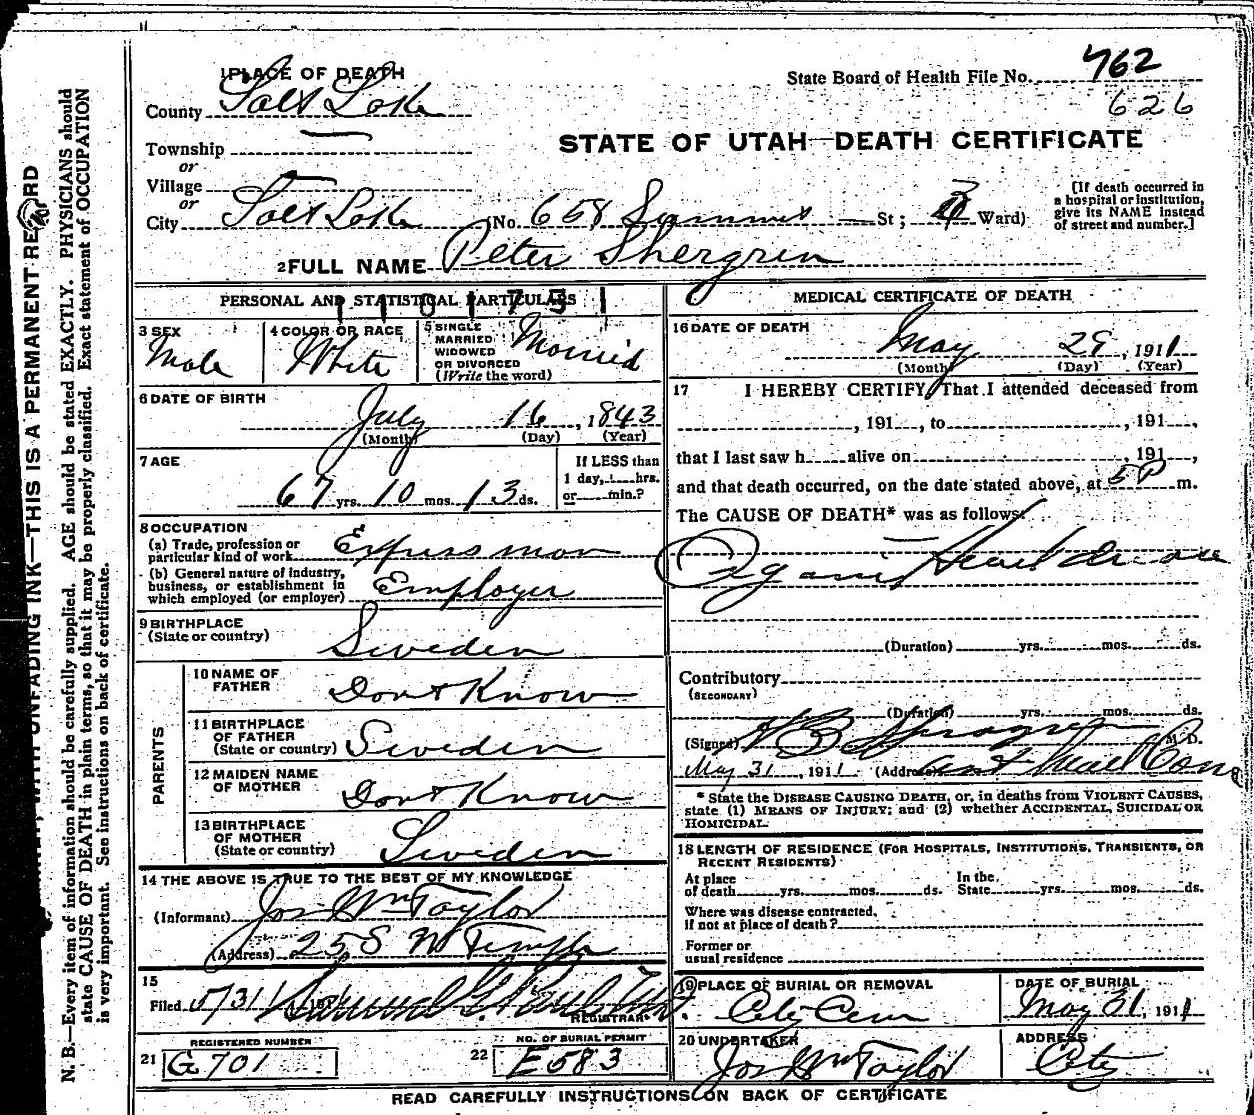 1 PLACE OF DEATH
State Board of Health File No. 762
626
County Salt Lake
STATE OF UTAH—DEATH CERTIFICATE
Township
or
Village
or
City Salt Lake (No. 658 St; Ward)
[If death occurred in a hospital or institution, give its NAME instead of street and number.]
2 FULL NAME Peter Shergren
PERSONAL AND STATISTICAL PARTICULARS
3 SEX
Male
4 COLOR OR RACE
White
5 SINGLE MARRIED WIDOWED OR DIVORCED (Write the word)
Married
6 DATE OF BIRTH
July 16, 1843
(Month) (Day) (Year)
7 AGE
67 yrs. 10 mos. 13 ds.
If LESS than 1 day, hrs. or min.?
8 OCCUPATION
(a) Trade, profession or particular kind of work Expressman
(b) General nature of industry, business, or establishment in which employed (or employer) Employer
9 BIRTHPLACE
(State or country)
Sweden
PARENTS
10 NAME OF FATHER Don't Know
11 BIRTHPLACE OF FATHER (State or country) Sweden
12 MAIDEN NAME OF MOTHER Don't Know
13 BIRTHPLACE OF MOTHER (State or country) Sweden
14 THE ABOVE IS TRUE TO THE BEST OF MY KNOWLEDGE
(Informant) Jos Wm Taylor
(Address) 25 S W Temple
15
Filed 5/31
REGISTRAR.
REGISTERED NUMBER
21 G 701
NO. OF BURIAL PERMIT
22 E 583
MEDICAL CERTIFICATE OF DEATH
16 DATE OF DEATH
May 29, 1911
(Month) (Day) (Year)
17 I HEREBY CERTIFY, That I attended deceased from
, 191 , to , 191 ,
that I last saw h alive on , 191 ,
and that death occurred, on the date stated above, at 5 P m.
The CAUSE OF DEATH* was as follows:
Organic Heart disease
(Duration) yrs. mos. ds.
Contributory
(SECONDARY)
(Duration) yrs. mos. ds.
(Signed) M.D.
May 31, 1911 (Address)
* State the DISEASE CAUSING DEATH, or, in deaths from VIOLENT CAUSES, state (1) MEANS OF INJURY; and (2) whether ACCIDENTAL, SUICIDAL OR HOMICIDAL.
18 LENGTH OF RESIDENCE (FOR HOSPITALS, INSTITUTIONS, TRANSIENTS, OR RECENT RESIDENTS)
At place of death yrs. mos. ds. In the State yrs. mos. ds.
Where was disease contracted, if not at place of death?
Former or usual residence
19 PLACE OF BURIAL OR REMOVAL
City Cem
DATE OF BURIAL
May 31, 1911
20 UNDERTAKER
Jos Wm Taylor
ADDRESS
City
READ CAREFULLY INSTRUCTIONS ON BACK OF CERTIFICATE
UNFADING INK—THIS IS A PERMANENT RECORD
N. B.—Every item of information should be carefully supplied. AGE should be stated EXACTLY. PHYSICIANS should
state CAUSE OF DEATH in plain terms, so that it may be properly classified. Exact statement of OCCUPATION
is very important. See instructions on back of certificate.